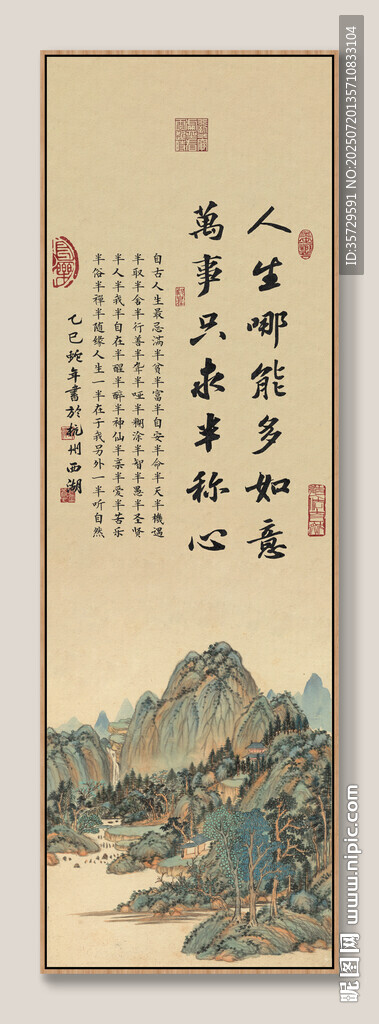 人生哪能多如意
萬事只求半称心
自古人生最忌满半贫半富半自安半命半天半機遇
半取半舍半行善半聋半哑半糊涂半智半愚半圣贤
半人半我半自在半醒半醉半神仙半亲半爱半苦乐
半俗半禅半随缘人生一半在于我另外一半听自然
乙巳蛇年書於杭州西湖
ID:35729591 NO:20250720135710833104
昵图网 www.nipic.com